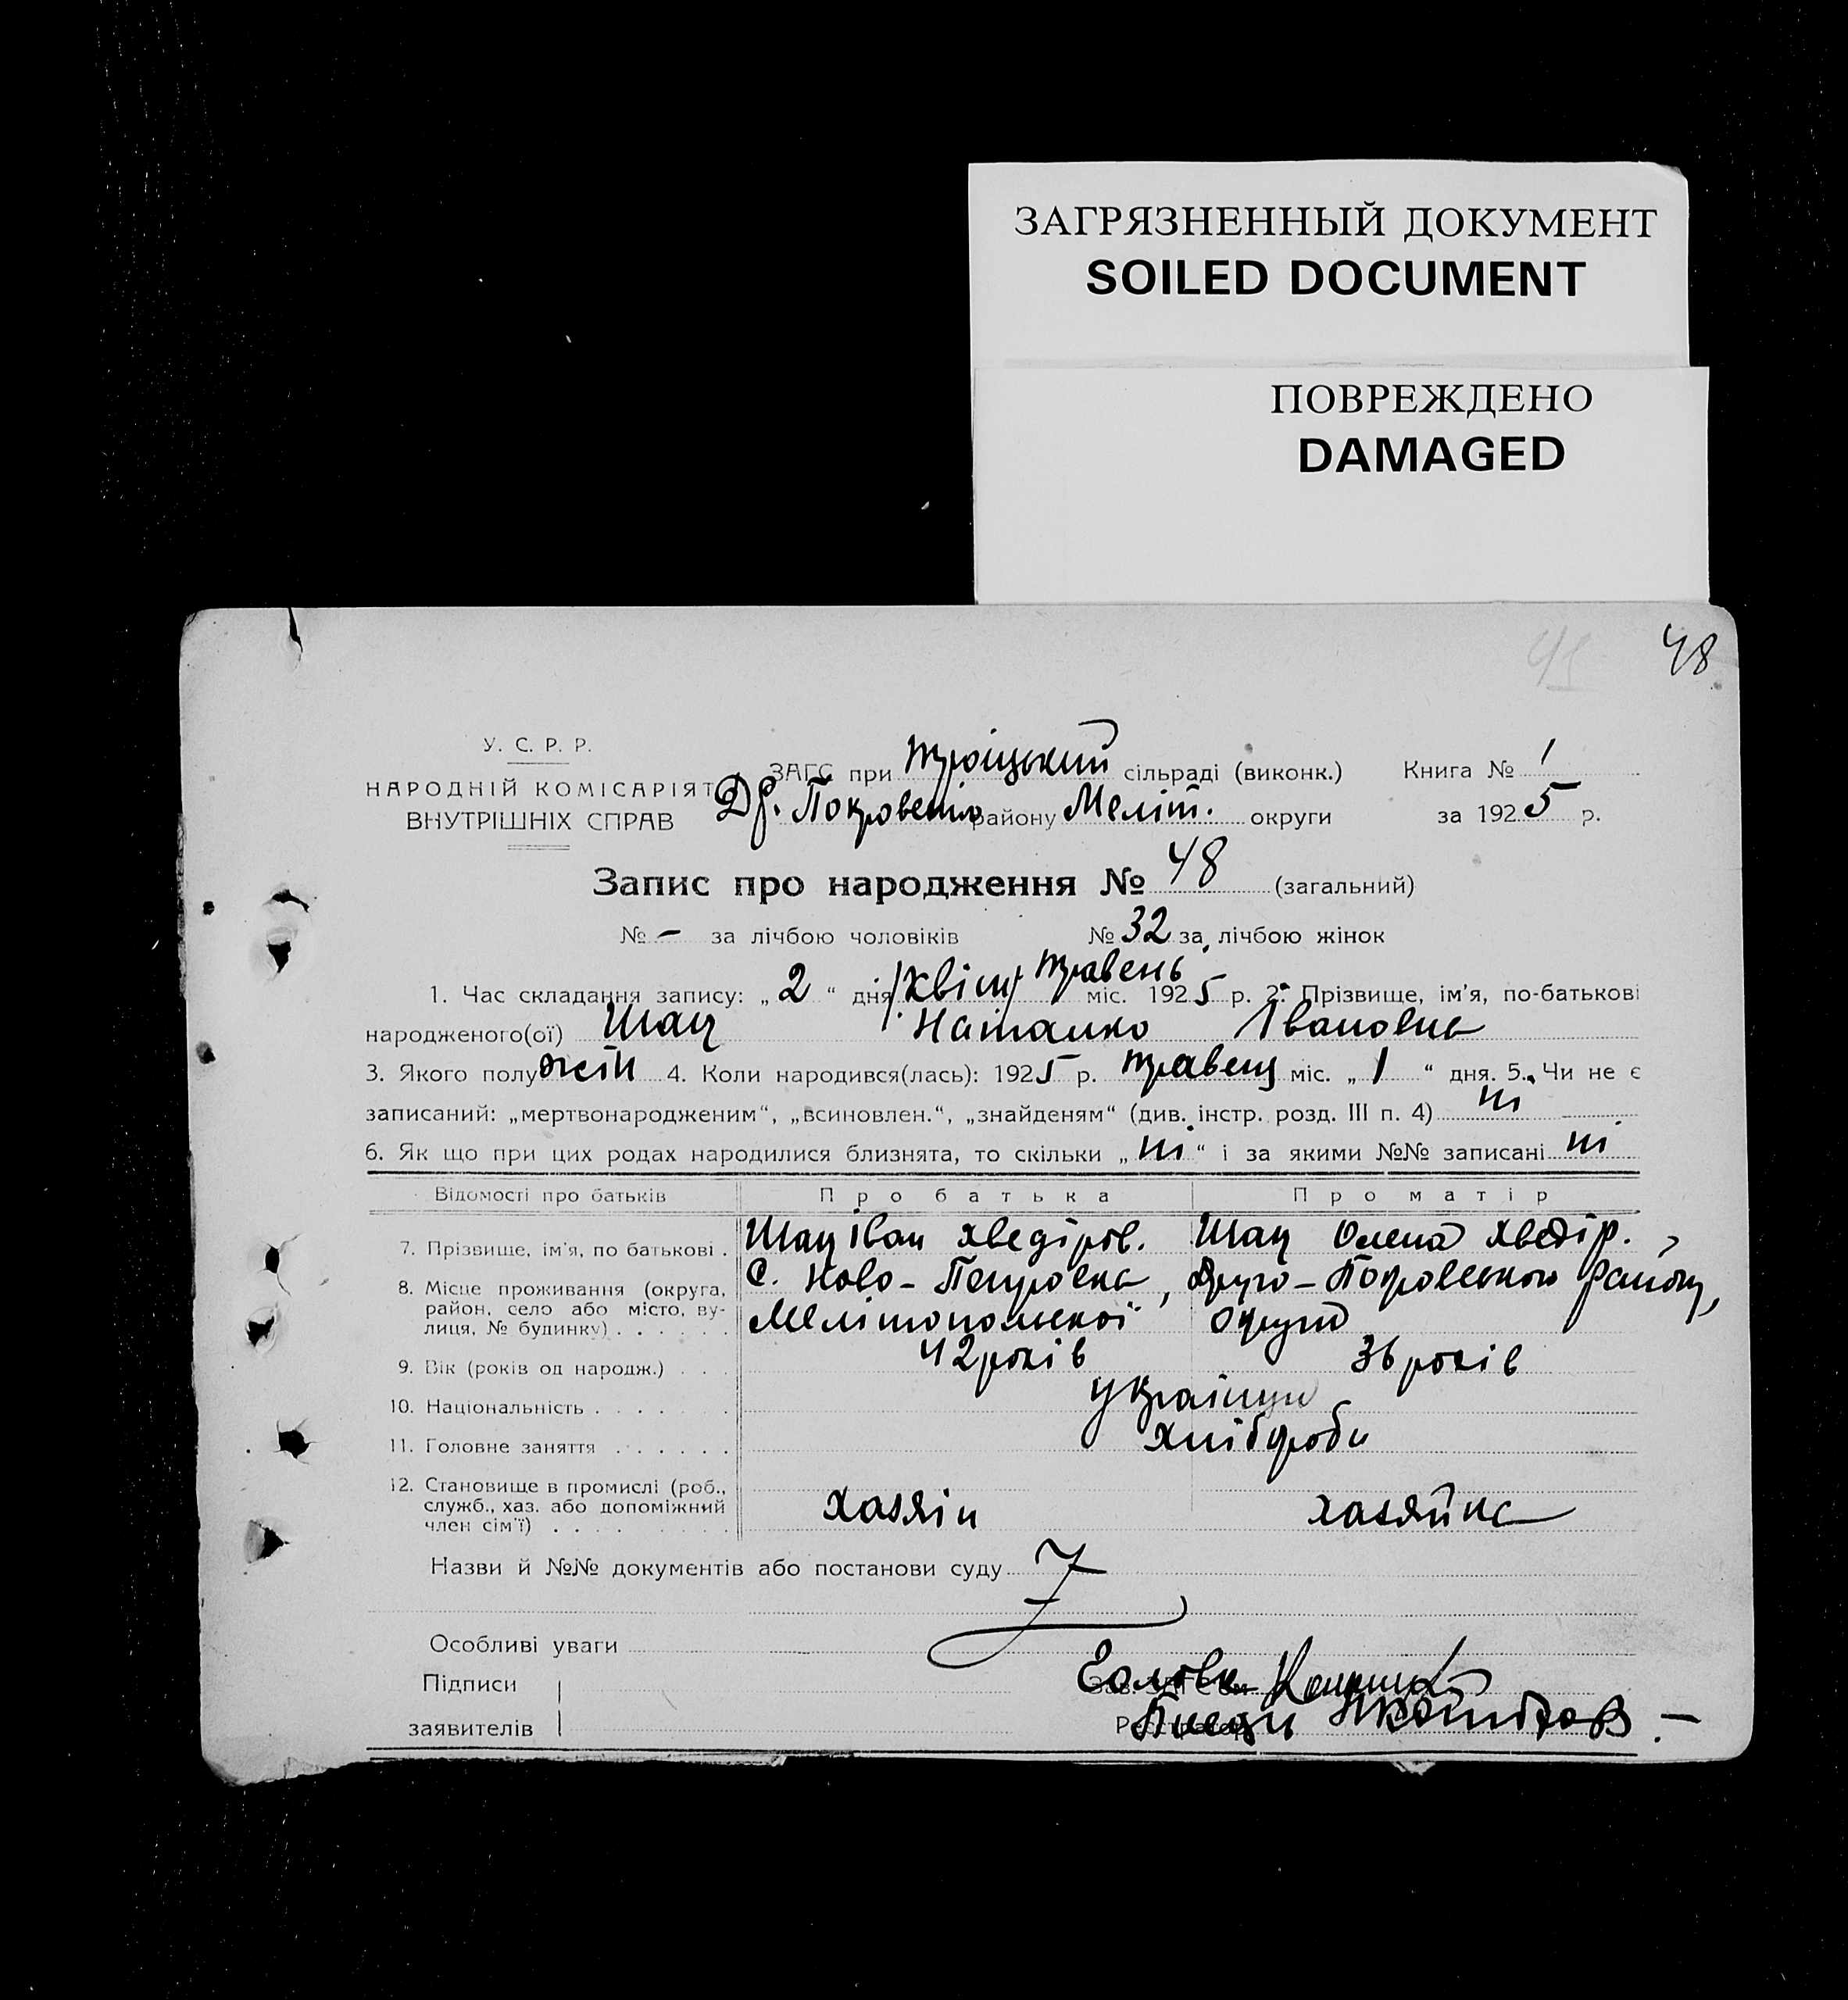 ЗАГРЯЗНЕННЫЙ ДОКУМЕНТ
SOILED DOCUMENT
ПОВРЕЖДЕНО
DAMAGED
48
У. С. Р. Р.
НАРОДНІЙ КОМІСАРІЯТ
ВНУТРІШНІХ СПРАВ
ЗАГС при Троіцький сільраді (виконк.) Книга № 1
Др. Покровськ району Меліт. округи за 1925 р.
Запис про народження № 48 (загальний)
№ – за лічбою чоловіків № 32 за лічбою жінок
травень
1. Час складання запису: „2“ дня /Квіт/ міс. 1925 р. 2. Прізвище, ім'я, по-батькові
народженого(ої) Шац Наталко Івановна
3. Якого полу жін 4. Коли народився(лась): 1925 р. травець міс. „1“ дня. 5. Чи не є
записаний: „мертвонародженим“, „всиновлен.“, „знайденям“ (див. інстр. розд. III п. 4) ні
6. Як що при цих родах народилися близнята, то скільки „ні“ і за якими №№ записані ні
Відомості про батьків Про батька Про матір
7. Прізвище, ім'я, по батькові . Шац Іван Хведіров. Шац Олена Хведір.
8. Місце проживання (округа, район, село або місто, вулиця, № будинку) . . . . . . С. Ново-Петровка, Друго-Покровського району,
Мелітопольскоі округи
9. Вік (років од народж.) . . . 42 років 36 років
10. Національність . . . . . українці
11. Головне заняття . . . . . . хлібороби
12. Становище в промислі (роб.,
служб., хаз. або допоміжний
член сім'ї) . . . . . . хазяін хазяйка
Назви й №№ документів або постанови суду
Особливі уваги
Підписи
заявителів
Голова